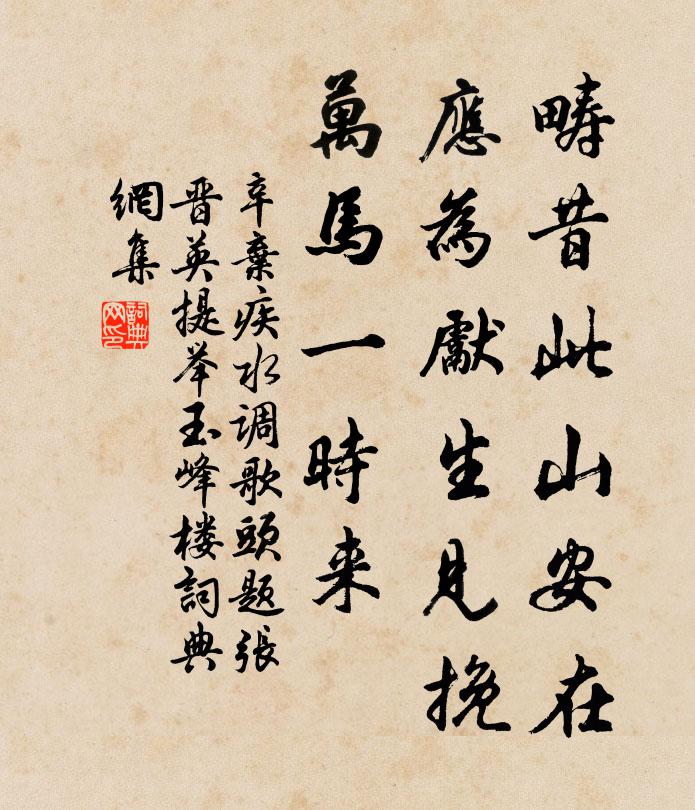 疇昔此山安在
應為獻生見挽
萬馬一時来
辛棄疾水调歌頭题張
晋英提举玉峰楼詞典
網集
詞典网印